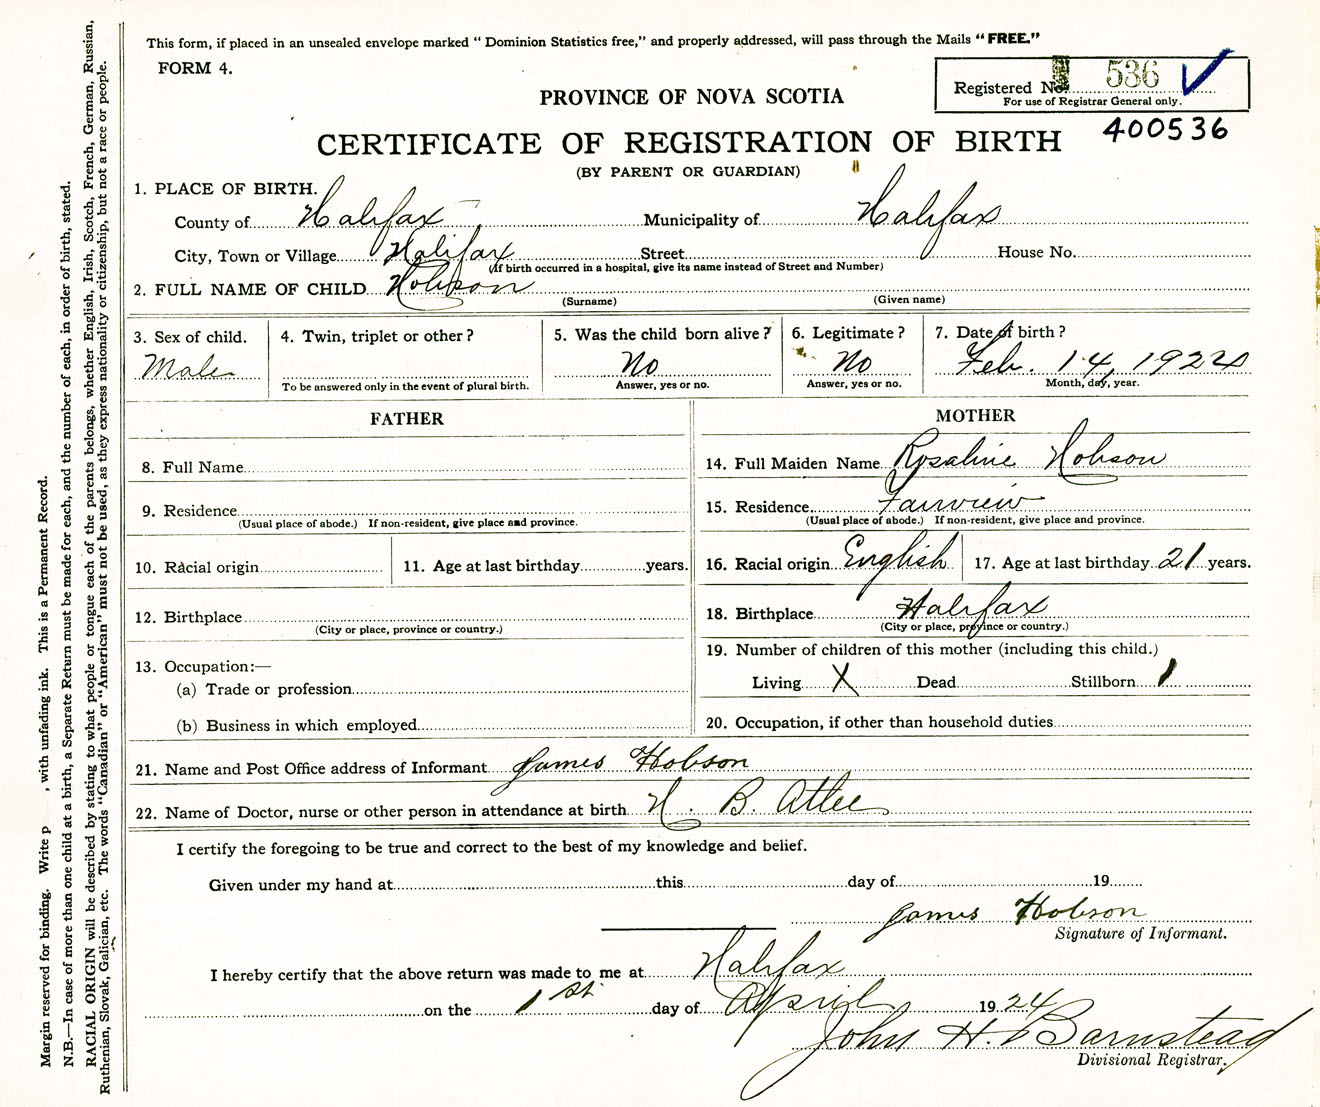 This form, if placed in an unsealed envelope marked "Dominion Statistics free," and properly addressed, will pass through the Mails "FREE."
FORM 4.
Registered No. 536 ✓
For use of Registrar General only.
400536
PROVINCE OF NOVA SCOTIA
CERTIFICATE OF REGISTRATION OF BIRTH
(BY PARENT OR GUARDIAN)
1. PLACE OF BIRTH.
County of Halifax Municipality of Halifax
City, Town or Village Halifax Street House No.
(If birth occurred in a hospital, give its name instead of Street and Number)
2. FULL NAME OF CHILD Hobson
(Surname) (Given name)
3. Sex of child. 4. Twin, triplet or other? 5. Was the child born alive? 6. Legitimate? 7. Date of birth?
Male No No Feb. 14, 1924
To be answered only in the event of plural birth. Answer, yes or no. Answer, yes or no. Month, day, year.
FATHER
8. Full Name
9. Residence
(Usual place of abode.) If non-resident, give place and province.
10. Racial origin 11. Age at last birthday years.
12. Birthplace
(City or place, province or country.)
13. Occupation:—
(a) Trade or profession
(b) Business in which employed
MOTHER
14. Full Maiden Name Rosaline Hobson
15. Residence. Fairview
(Usual place of abode.) If non-resident, give place and province.
16. Racial origin English 17. Age at last birthday 21 years.
18. Birthplace Halifax
(City or place, province or country.)
19. Number of children of this mother (including this child.)
Living X Dead Stillborn 1
20. Occupation, if other than household duties
21. Name and Post Office address of Informant James Hobson
22. Name of Doctor, nurse or other person in attendance at birth H. B. Atlee
I certify the foregoing to be true and correct to the best of my knowledge and belief.
Given under my hand at this day of 19
James Hobson
Signature of Informant.
I hereby certify that the above return was made to me at Halifax
on the 1st day of April 1924
John H. Barnstead
Divisional Registrar.
Margin reserved for binding. Write p , with unfading ink. This is a Permanent Record.
N.B.—In case of more than one child at a birth, a Separate Return must be made for each, and the number of each, in order of birth, stated.
RACIAL ORIGIN will be described by stating to what people or tongue each of the parents belongs, whether English, Irish, Scotch, French, German, Russian,
Ruthenian, Slovak, Galician, etc. The words "Canadian" or "American" must not be used, as they express nationality or citizenship, but not a race or people.